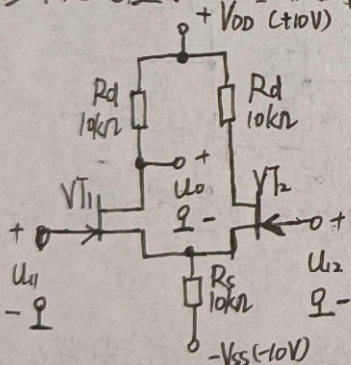 + VDD (+10V)
Rd
10kΩ
Rd
10kΩ
+
u₀
-
VT₁
VT₂
+
u_{I1}
-
+
u_{I2}
-
Rs
10kΩ
-VSS(-10V)